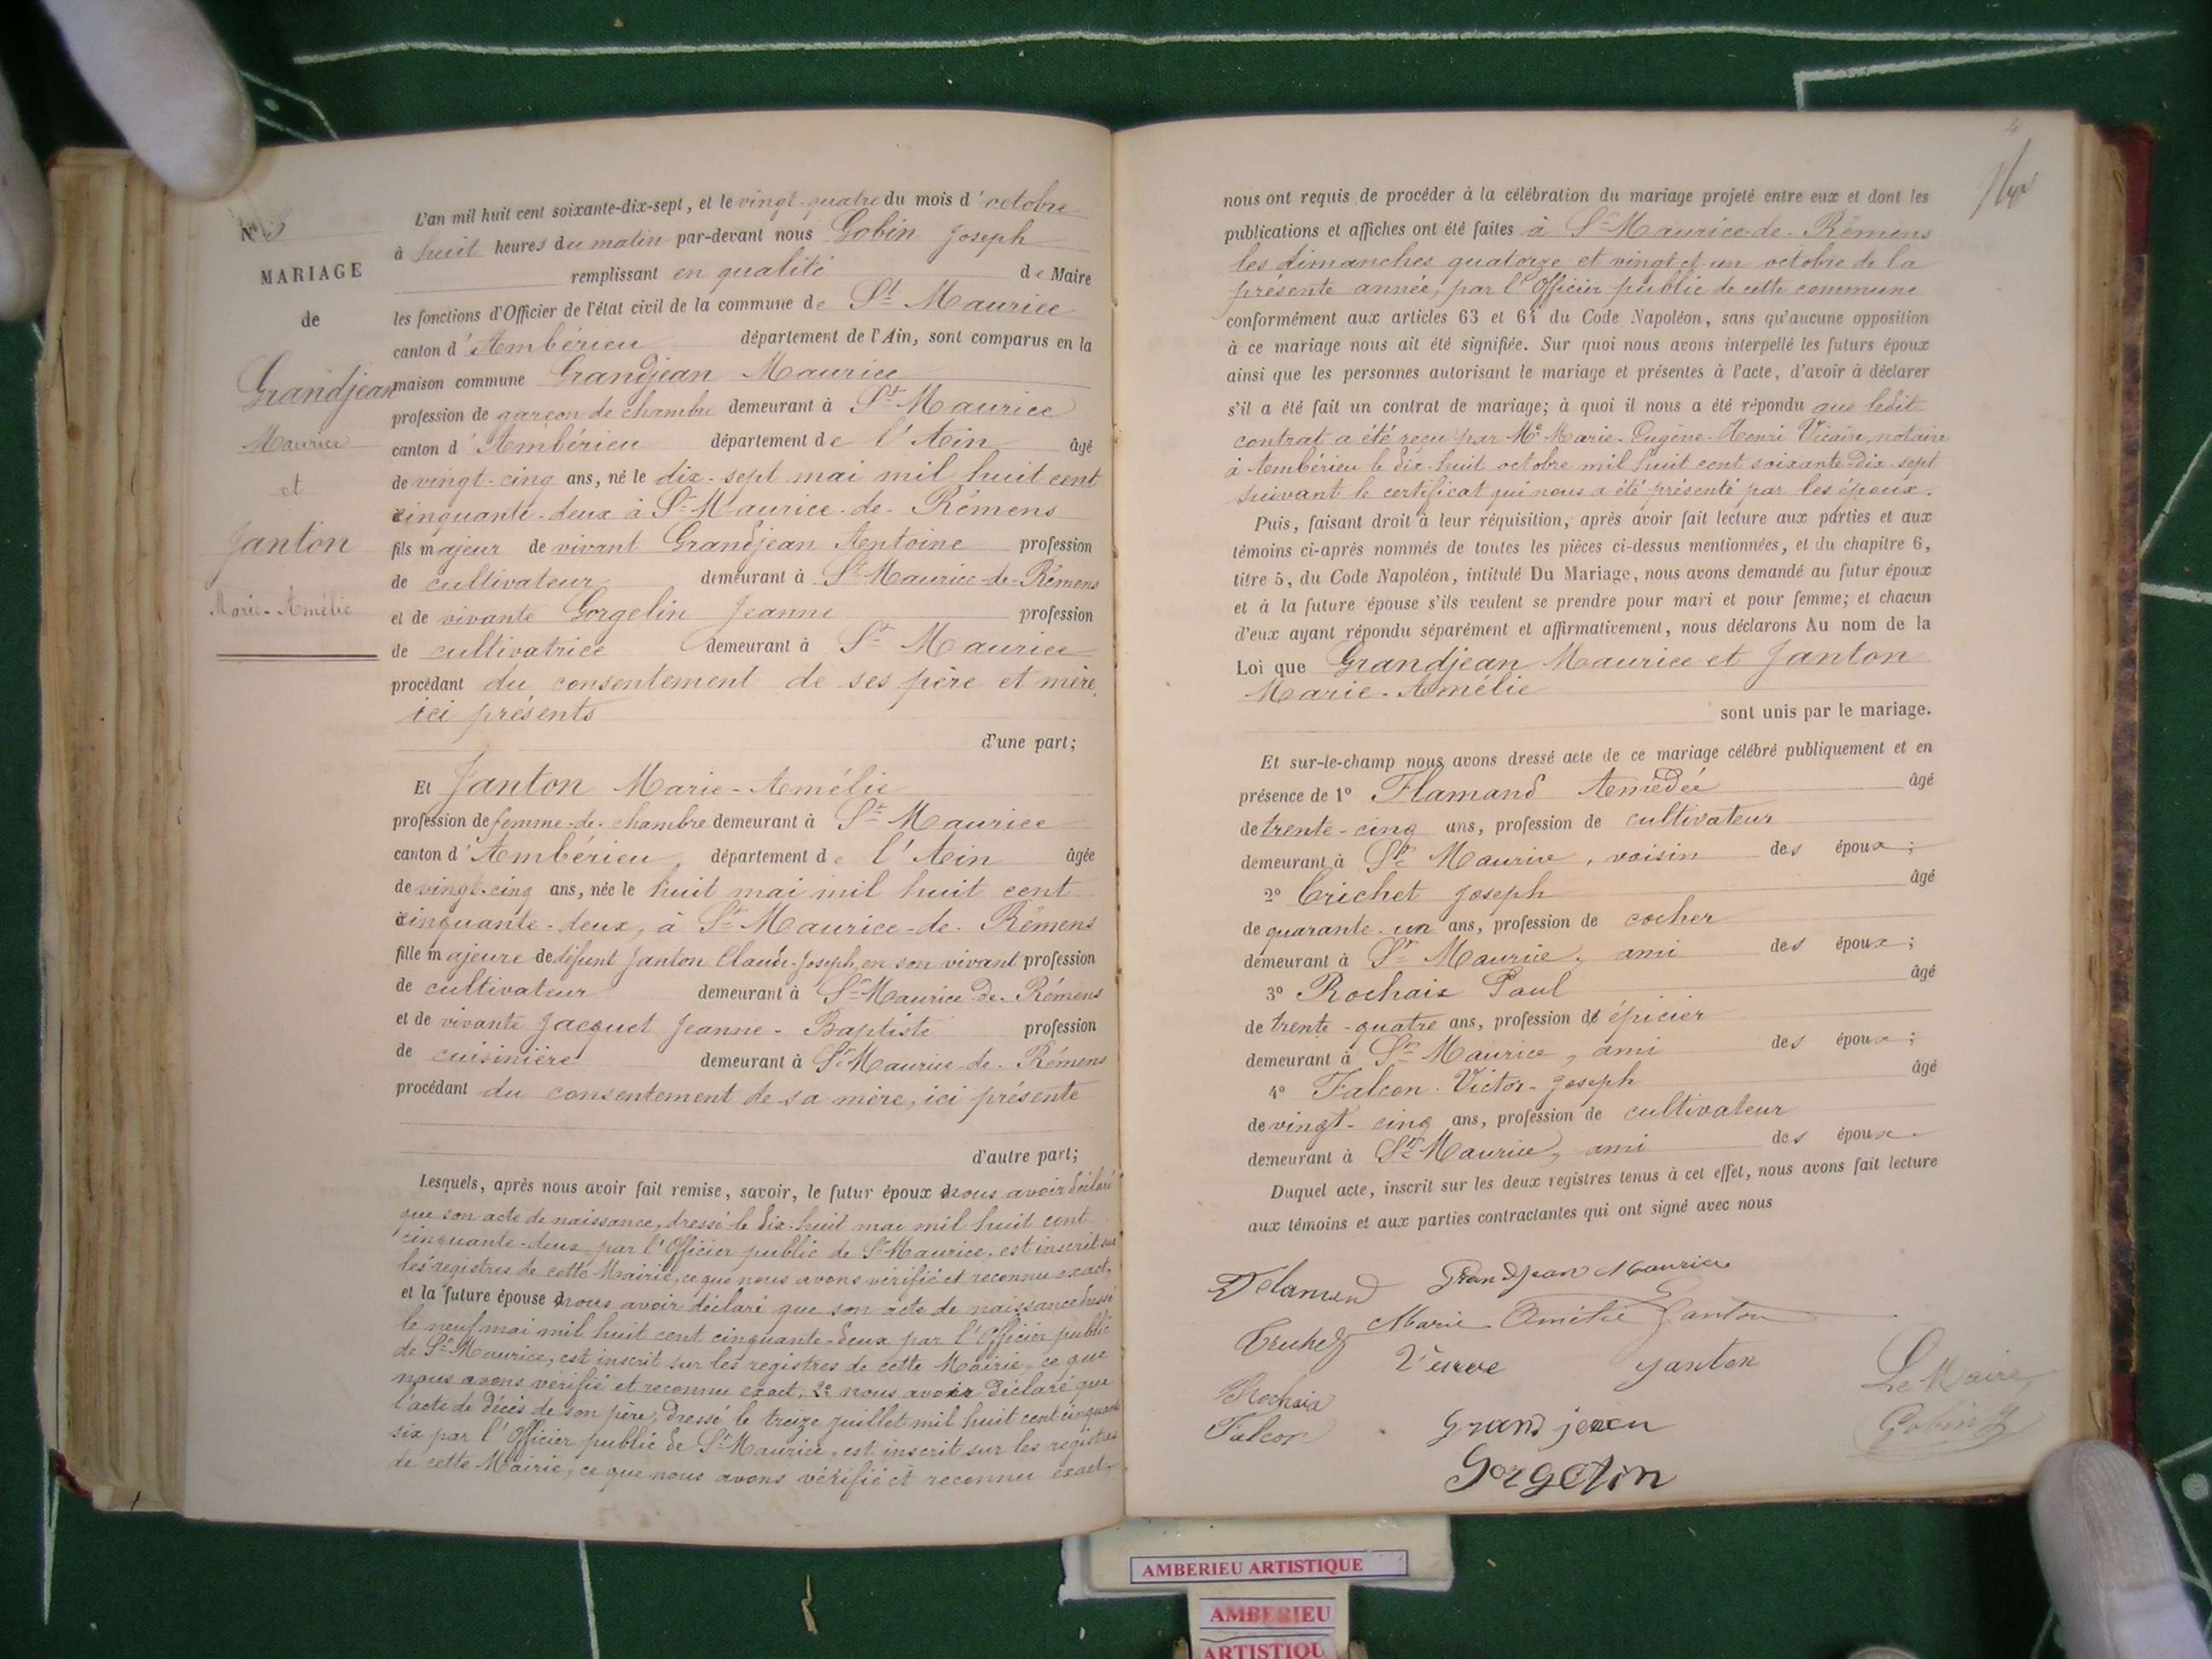 N° 3
MARIAGE
de
Grandjean
Maurice
et
Janton
Marie-Amélie
L'an mil huit cent soixante-dix-sept, et le vingt-quatre du mois d'octobre
à huit heures du matin par-devant nous Gobin Joseph
remplissant en qualité de Maire
les fonctions d'Officier de l'état civil de la commune de St Maurice
canton d'Ambérieu département de l'Ain, sont comparus en la
maison commune Grandjean Maurice
profession de garçon de chambre demeurant à St Maurice
canton d'Ambérieu département de l'Ain âgé
de vingt-cinq ans, né le dix-sept mai mil huit cent
cinquante-deux à St Maurice-de-Rémens
fils majeur de vivant Grandjean Antoine profession
de cultivateur demeurant à St Maurice-de-Rémens
et de vivante Gorgelin Jeanne profession
de cultivatrice demeurant à St Maurice
procédant du consentement de ses père et mère,
ici présents
d'une part;
Et Janton Marie-Amélie
profession de femme-de-chambre demeurant à St Maurice
canton d'Ambérieu, département de l'Ain âgée
de vingt-cinq ans, née le huit mai mil huit cent
cinquante-deux, à St Maurice-de-Rémens
fille majeure de défunt Janton Claude-Joseph, en son vivant profession
de cultivateur demeurant à St Maurice-de-Rémens
et de vivante Jacquet Jeanne-Baptiste profession
de cuisinière demeurant à St Maurice-de-Rémens
procédant du consentement de sa mère, ici présente
d'autre part;
Lesquels, après nous avoir fait remise, savoir, le futur époux nous avoir déclaré
que son acte de naissance, dressé le dix-huit mai mil huit cent
cinquante-deux par l'Officier public de St Maurice, est inscrit sur
les registres de cette Mairie, ce que nous avons vérifié et reconnu exact,
et la future épouse nous avoir déclaré que son acte de naissance dressé
le neuf mai mil huit cent cinquante-deux par l'Officier public
de St Maurice, est inscrit sur les registres de cette Mairie, ce que
nous avons vérifié et reconnu exact; 2° nous avoir déclaré que
l'acte de décès de son père, dressé le treize juillet mil huit cent cinquante
six par l'Officier public de St Maurice, est inscrit sur les registres
de cette Mairie, ce que nous avons vérifié et reconnu exact,
4
nous ont requis de procéder à la célébration du mariage projeté entre eux et dont les
publications et affiches ont été faites à St Maurice-de-Rémens
les dimanches quatorze et vingt et un octobre de la
présente année, par l'Officier public de cette commune
conformément aux articles 63 et 64 du Code Napoléon, sans qu'aucune opposition
à ce mariage nous ait été signifiée. Sur quoi nous avons interpellé les futurs époux
ainsi que les personnes autorisant le mariage et présentes à l'acte, d'avoir à déclarer
s'il a été fait un contrat de mariage; à quoi il nous a été répondu que ledit
contrat a été reçu par Me Marie-Eugène-Henri Vicaire, notaire
à Ambérieu le dix-huit octobre mil huit cent soixante-dix-sept
suivant le certificat qui nous a été présenté par les époux.
Puis, faisant droit à leur réquisition, après avoir fait lecture aux parties et aux
témoins ci-après nommés de toutes les pièces ci-dessus mentionnées, et du chapitre 6,
titre 5, du Code Napoléon, intitulé Du Mariage, nous avons demandé au futur époux
et à la future épouse s'ils veulent se prendre pour mari et pour femme; et chacun
d'eux ayant répondu séparément et affirmativement, nous déclarons Au nom de la
Loi que Grandjean Maurice et Janton
Marie-Amélie
sont unis par le mariage.
Et sur-le-champ nous avons dressé acte de ce mariage célébré publiquement et en
présence de 1° Flamand Amédée âgé
de trente-cinq ans, profession de cultivateur
demeurant à St Maurice, voisin des époux;
2° Crichet Joseph âgé
de quarante-un ans, profession de cocher
demeurant à St Maurice, ami des époux;
3° Rochaix Paul âgé
de trente-quatre ans, profession de épicier
demeurant à St Maurice, ami des époux;
4° Falcon Victor-Joseph âgé
de vingt-cinq ans, profession de cultivateur
demeurant à St Maurice, ami des époux.
Duquel acte, inscrit sur les deux registres tenus à cet effet, nous avons fait lecture
aux témoins et aux parties contractantes qui ont signé avec nous
Flamand Grandjean Maurice
Marie Amélie Janton
Veuve Janton
Rochaix
Falcon
Le Maire,
Gobin J
Grand jean
Gorgelin
AMBERIEU ARTISTIQUE
AMBERIEU
ARTISTIQU